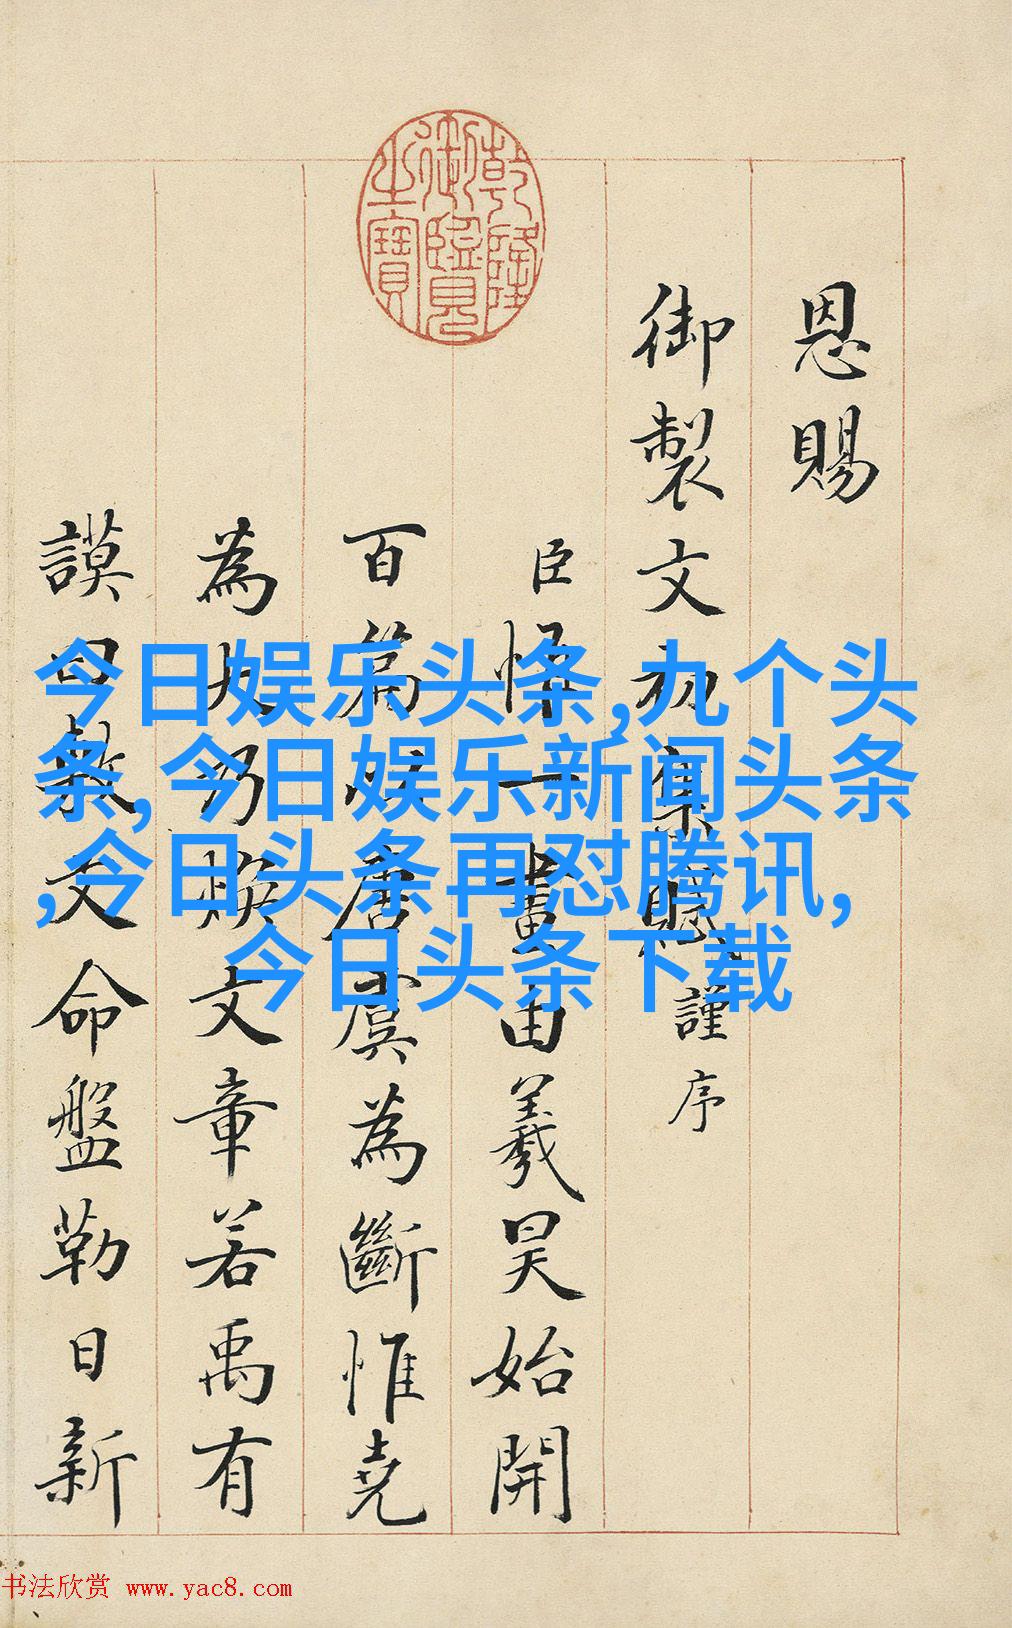 乾隆
御覽
之寶
恩賜
御製文初集賦謹序
臣惟一畫由羲昊始開
百篇以唐虞為斷惟堯
為大乃煥文章若禹有
謨曰敷文命盤勒日新
今日娱乐头条,九个头
条,今日娱乐新闻头条
,今日头条再怼腾讯,
今日头条下载
书法欣赏 www.yac8.com